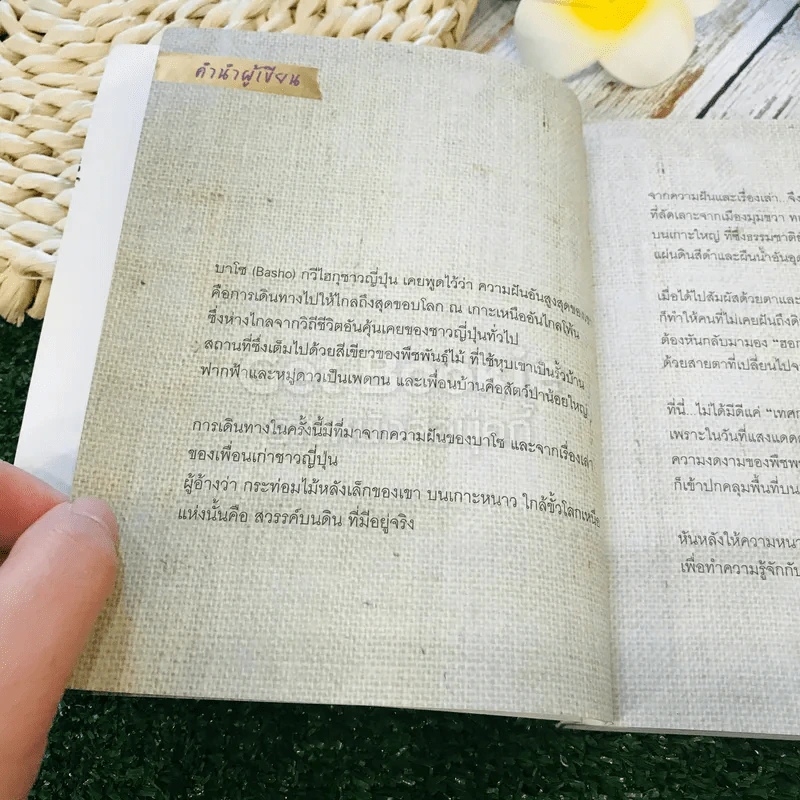 คำนำผู้เขียน
บาโช (Basho) กวีไฮกุชาวญี่ปุ่น เคยพูดไว้ว่า ความฝันอันสูงสุดของเขา
คือการเดินทางไปให้ไกลถึงสุดขอบโลก ณ เกาะเหนืออันไกลโพ้น
ซึ่งห่างไกลจากวิถีชีวิตอันคุ้นเคยของชาวญี่ปุ่นทั่วไป
สถานที่ซึ่งเต็มไปด้วยสีเขียวของพืชพันธุ์ไม้ ที่ใช้หุบเขาเป็นรั้วบ้าน
ฟากฟ้าและหมู่ดาวเป็นเพดาน และเพื่อนบ้านคือสัตว์ป่าน้อยใหญ่
การเดินทางในครั้งนี้มีที่มาจากความฝันของบาโช และจากเรื่องเล่า
ของเพื่อนเก่าชาวญี่ปุ่น
ผู้อ้างว่า กระท่อมไม้หลังเล็กของเขา บนเกาะหนาว ใกล้ขั้วโลกเหนือ
แห่งนั้นคือ สวรรค์บนดิน ที่มีอยู่จริง
จากความฝันและเรื่องเล่า.. จึง
ที่ลัดเลาะจากเมืองมุมขวา
บนเกาะใหญ่ ที่ซึ่งธรรมชาติ
แผ่นดินสีดำและผืนน้ำอัน
เมื่อได้ไปสัมผัสด้วยตาและ
ก็ทำให้คนที่ไม่เคยฝันถึง
ต้องหันกลับมามอง
ด้วยสายตาที่เปลี่ยนไป
ที่นี่..ไม่ได้มีดีแค่
เพราะในวันที่แสงแดด
ความงดงามของพืช
ก็เข้าปกคลุมพื้นที่บน
หันหลังให้ความหนา
เพื่อทำความรู้จักกับ